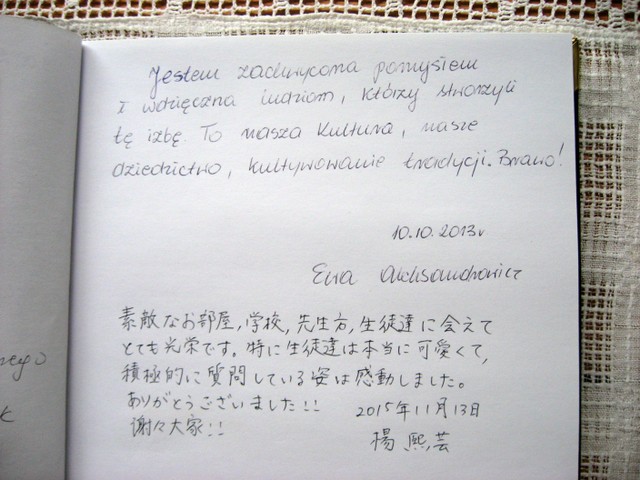 nego
k
Jestem zachwycona pomysłem
i wdzięczna ludziom, którzy stworzyli
tę izbę. To nasza kultura, nasze
dziedzictwo, kultywowanie tradycji. Brawo!
10.10.2013r
Ewa Aleksandrowicz
素敵なお部屋,学校,先生方,生徒達に会えて
とても光栄です。特に生徒達は本当に可愛くて,
積極的に質問している姿は感動しました。
ありがとうございました!! 2015年11月13日
谢々大家!!
楊熙芸